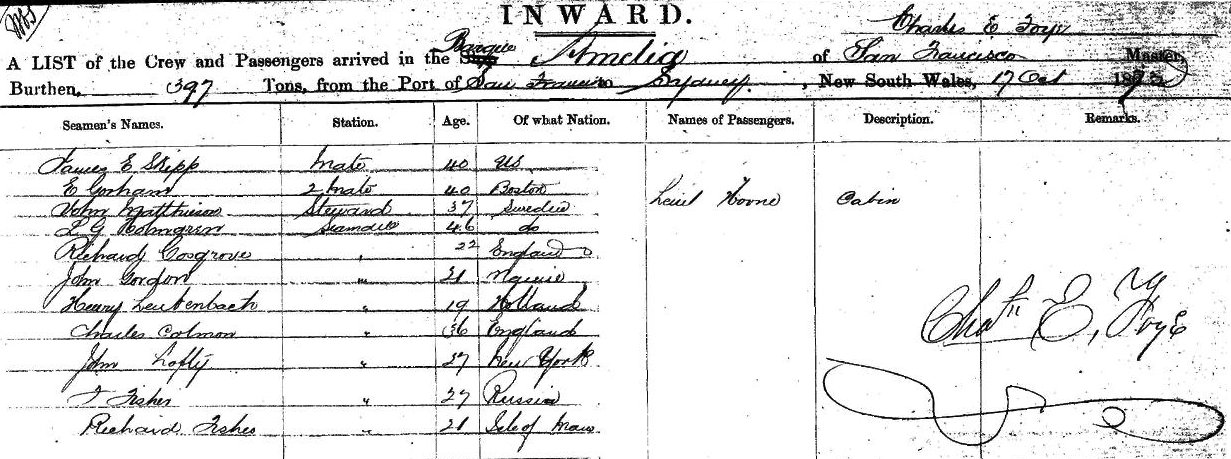 INWARD.
Charles E Foye
A LIST of the Crew and Passengers arrived in the Barque Amelia of San Francisco Master,
Burthen, 397 Tons, from the Port of San Francisco Sydney, New South Wales, 17 Oct 187
Seamen's Names. Station. Age. Of what Nation. Names of Passengers. Description. Remarks.
James E Skipp Mate 40 US
E Gorham 2 Mate 40 Boston
John Matthieson Steward 37 Sweden Lieut Cabin
L G Holmgren Seaman 46 do
Richard Cosgrove " 22 England
John Gordon " 21
Henry Leutenbach " 19 Holland
Charles Colmon " 36 England
John Lofty " 27 New York
F Fisher " 27 Russia
Richard Fisher " 21 Isle of Man
Chas E, Foye